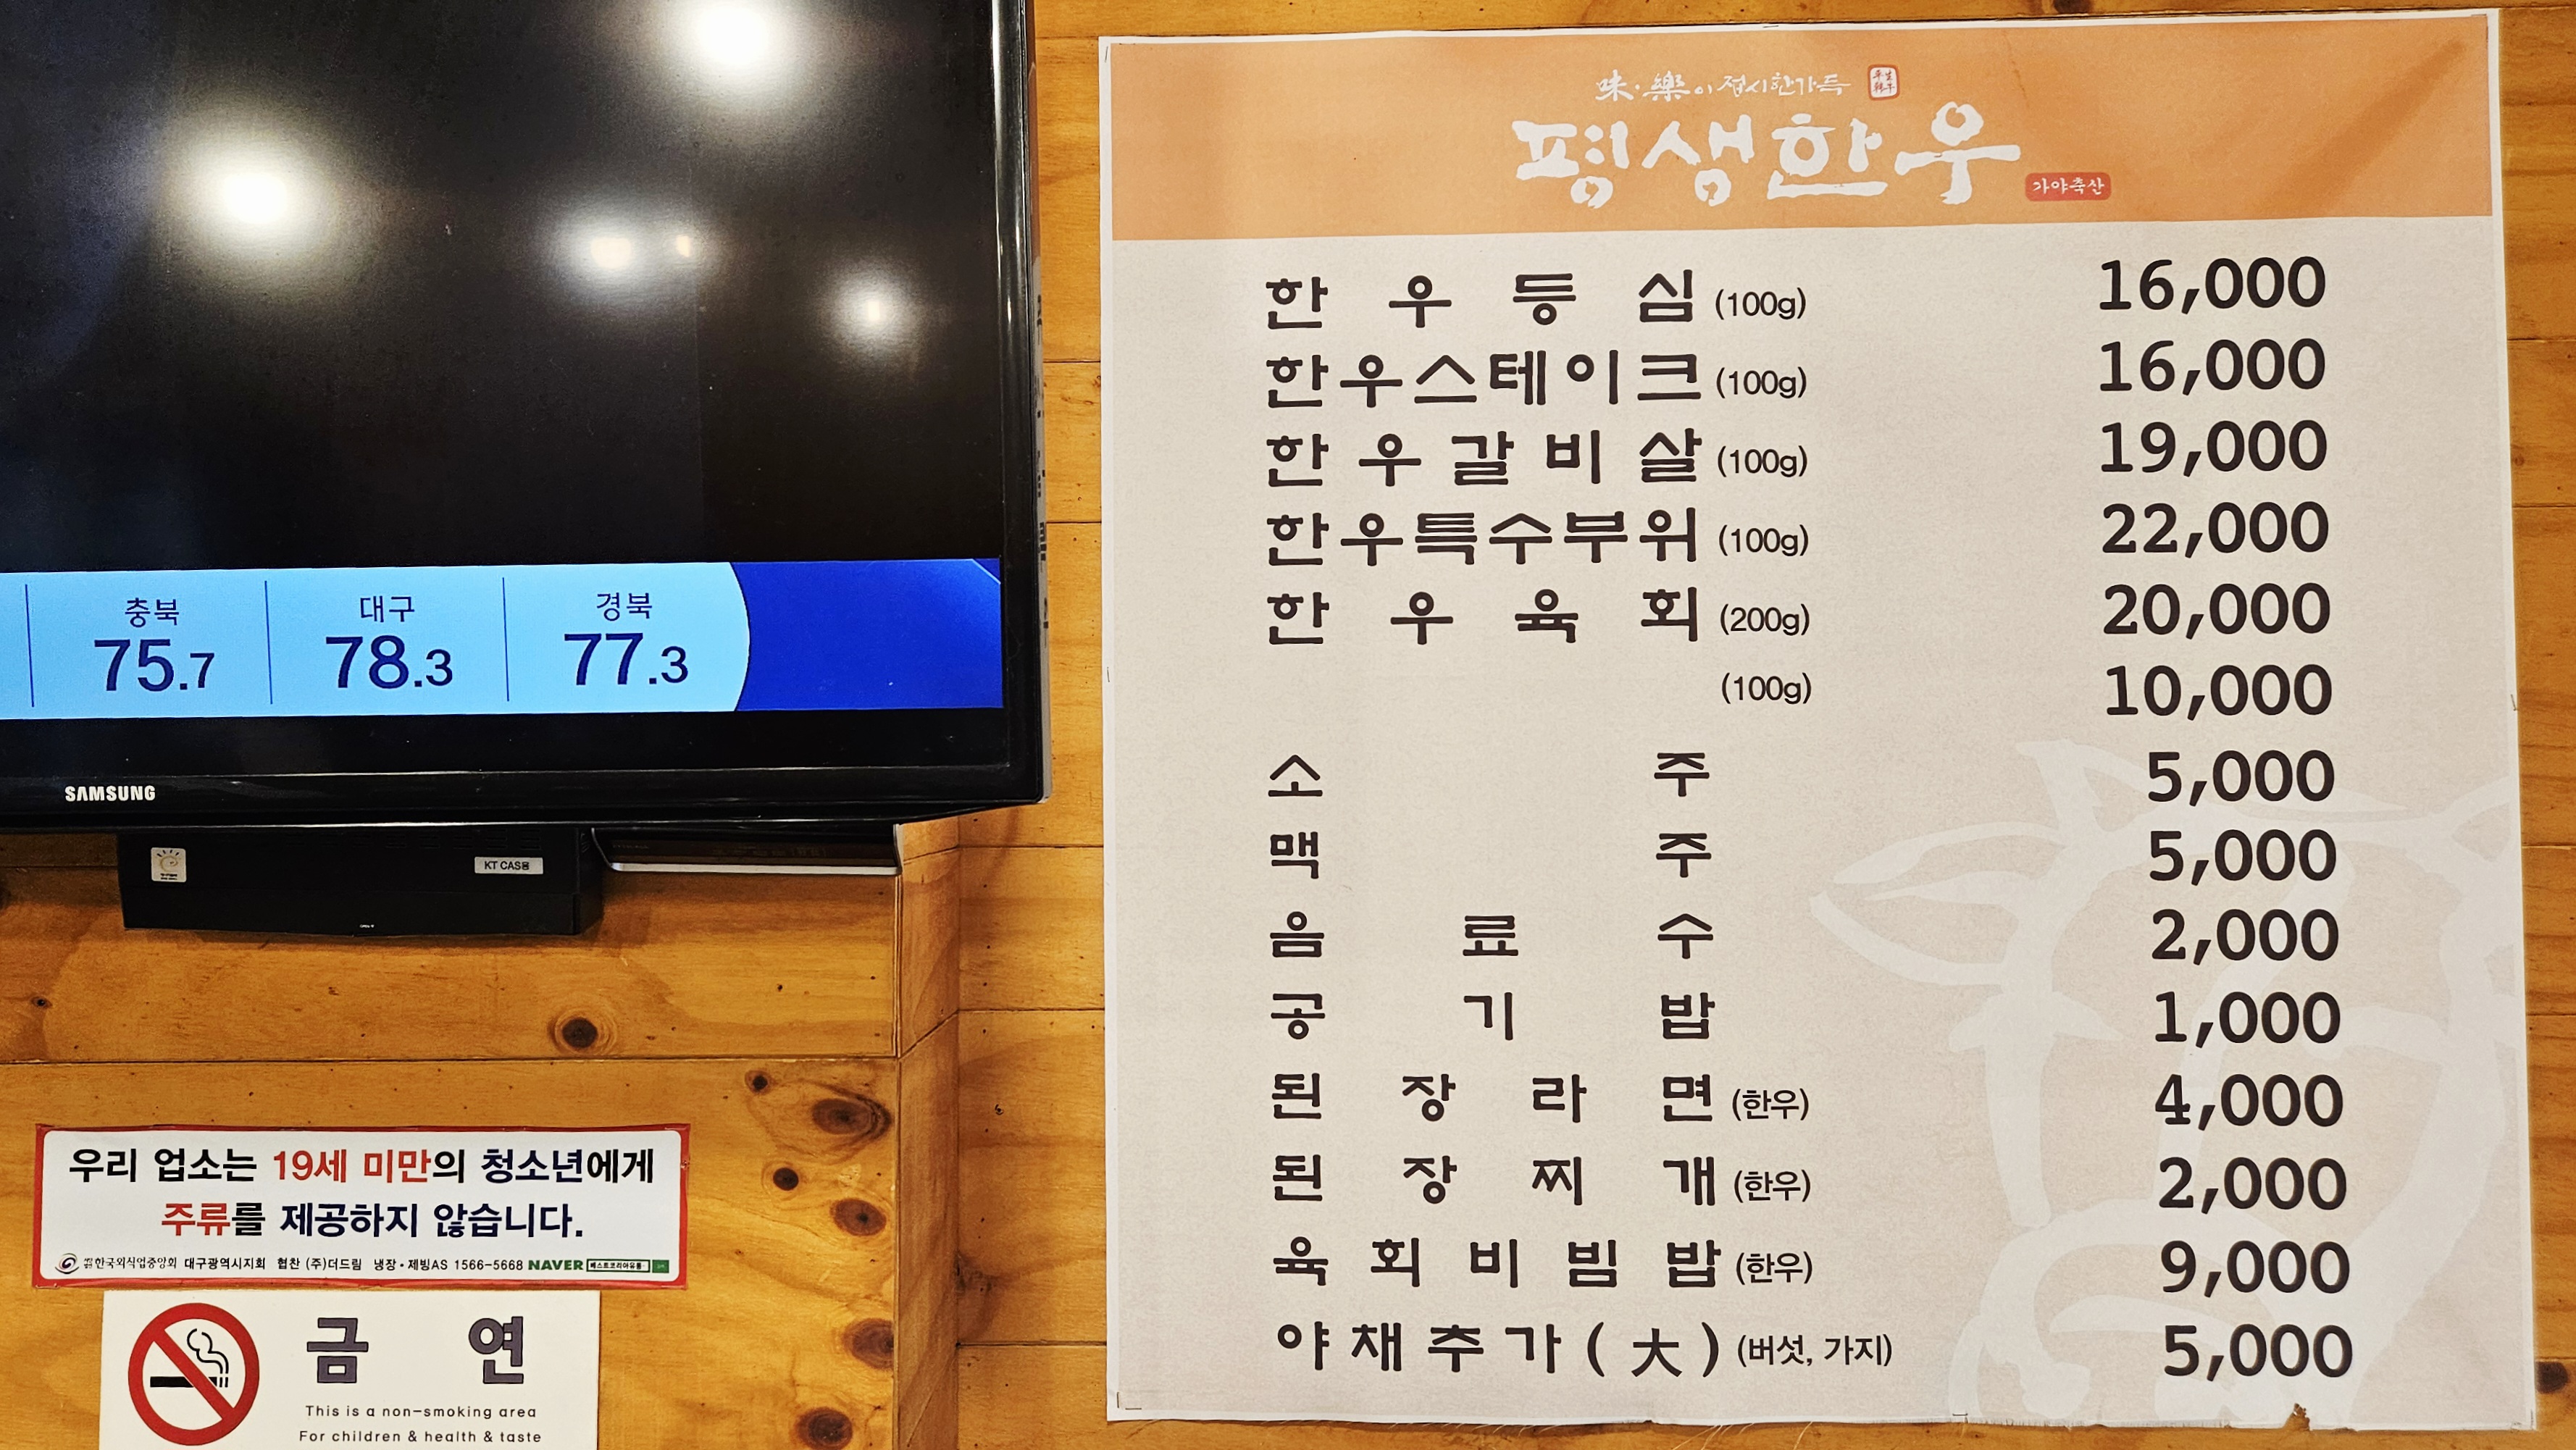 충북 대구 경북
75.7 78.3 77.3
SAMSUNG
KT CAS용
우리 업소는 19세 미만의 청소년에게
주류를 제공하지 않습니다.
한국외식업중앙회 대구광역시지회 협찬 (주)더드림 냉장·제빙AS 1566-5668 NAVER 베스트코리아유통
금 연
This is a non-smoking area
For children & health & taste
味·樂이 접시한가득
평생한우
가야축산
한우등심 (100g) 16,000
한우스테이크 (100g) 16,000
한우갈비살 (100g) 19,000
한우특수부위 (100g) 22,000
한우육회 (200g) 20,000
(100g) 10,000
소주 5,000
맥주 5,000
음료수 2,000
공기밥 1,000
된장라면 (한우) 4,000
된장찌개 (한우) 2,000
육회비빔밥 (한우) 9,000
야채추가(大) (버섯, 가지) 5,000